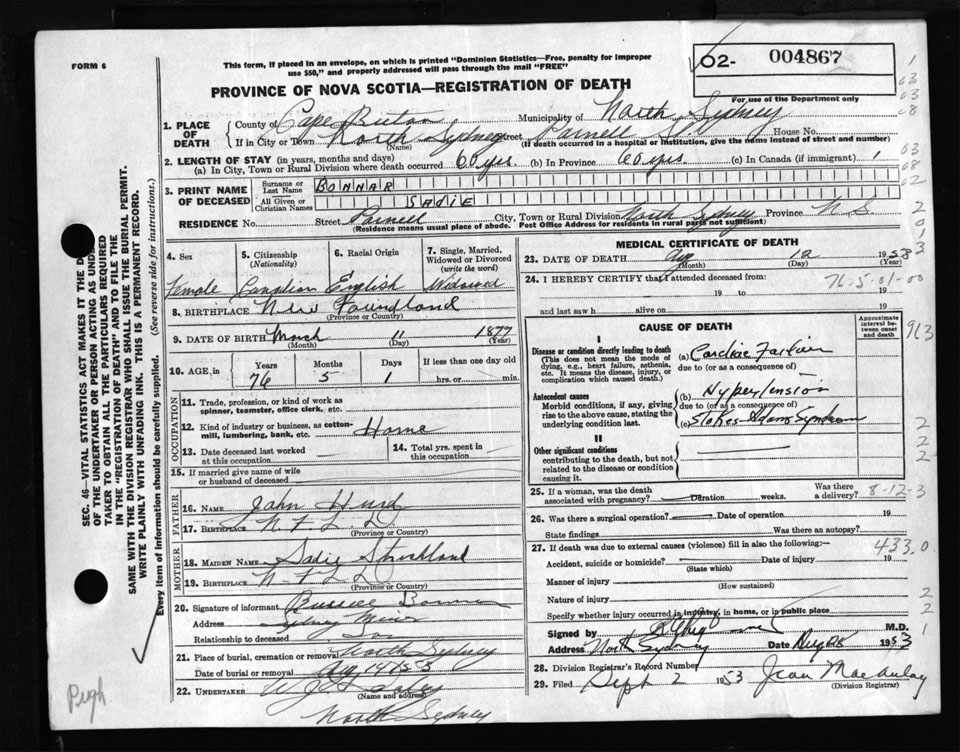 FORM 6
This form, if placed in an envelope, on which is printed "Dominion Statistics—Free, penalty for improper
use $50," and properly addressed will pass through the mail "FREE"
O2- 004867
For use of the Department only
PROVINCE OF NOVA SCOTIA—REGISTRATION OF DEATH
1. PLACE OF DEATH
County of Cape Breton Municipality of North Sydney
If in City or Town North Sydney Street Parnell St. House No.
(Name) (If death occurred in a hospital or institution, give the name instead of street and number)
2. LENGTH OF STAY (in years, months and days)
(a) In City, Town or Rural Division where death occurred 60 yrs. (b) In Province 60 yrs. (c) In Canada (if immigrant)
3. PRINT NAME OF DECEASED
Surname or Last Name BONNAR
All Given or Christian Names SADIE
RESIDENCE No. Street Parnell City, Town or Rural Division North Sydney Province N.S.
(Residence means usual place of abode. Post Office Address for residents in rural parts not sufficient)
4. Sex
Female
5. Citizenship
(Nationality)
Canadian
6. Racial Origin
English
7. Single, Married, Widowed or Divorced
(write the word)
Widowed
8. BIRTHPLACE New Foundland
(Province or Country)
9. DATE OF BIRTH March 11 1877
(Month) (Day) (Year)
10. AGE, in
Years 76
Months 5
Days 1
If less than one day old
hrs. or min.
OCCUPATION
11. Trade, profession, or kind of work as
spinner, teamster, office clerk, etc.
12. Kind of industry or business, as cotton-
mill, lumbering, bank, etc. Home
13. Date deceased last worked
at this occupation
14. Total yrs. spent in
this occupation
15. If married give name of wife
or husband of deceased
FATHER
16. NAME John Hurd
17. BIRTHPLACE NFLD.
(Province or Country)
MOTHER
18. MAIDEN NAME Sadie Strickland
19. BIRTHPLACE NFLD
(Province or Country)
20. Signature of informant Russell Bonnar
Address Sydney Mines
Relationship to deceased Son
21. Place of burial, cremation or removal North Sydney
Date of burial or removal Aug 14 1953
22. UNDERTAKER W.J.
(Name and address)
North Sydney
MEDICAL CERTIFICATE OF DEATH
23. DATE OF DEATH Aug 12 1953
(Month) (Day) (Year)
24. I HEREBY CERTIFY that I attended deceased from:
76-5-01-00
19 to 19
and last saw h alive on 19
CAUSE OF DEATH
Approximate interval between onset and death
I
Disease or condition directly leading to death
(This does not mean the mode of dying, e.g., heart failure, asthenia, etc. It means the disease, injury, or complication which caused death.)
(a) Cardiac Failure
due to (or as a consequence of)
Antecedent causes
Morbid conditions, if any, giving rise to the above cause, stating the underlying condition last.
(b) Hypertension
due to (or as a consequence of)
(c) Stokes-Adams Syndrom
II
Other significant conditions
contributing to the death, but not related to the disease or condition causing it.
25. If a woman, was the death
associated with pregnancy? Duration weeks. Was there a delivery? 8-12-3
26. Was there a surgical operation? Date of operation 19
State findings Was there an autopsy?
27. If death was due to external causes (violence) fill in also the following:
433.0
Accident, suicide or homicide? 19
(State which)
Manner of injury
(How sustained)
Nature of injury
Specify whether injury occurred in industry, in home, or in public place
Signed by M.D.
Address North Sydney Date Aug 1953
28. Division Registrar's Record Number
29. Filed Sept 2 1953 Jean MacAulay
(Division Registrar)
SEC. 46—VITAL STATISTICS ACT MAKES IT THE D
OF THE UNDERTAKER OR PERSON ACTING AS UNDE
TAKER TO OBTAIN ALL THE PARTICULARS REQUIRED
IN THE "REGISTRATION OF DEATH" AND TO FILE THE
SAME WITH THE DIVISION REGISTRAR WHO SHALL ISSUE THE BURIAL PERMIT.
WRITE PLAINLY WITH UNFADING INK. THIS IS A PERMANENT RECORD.
Every item of information should be carefully supplied. (See reverse side for instructions.)
Pugh